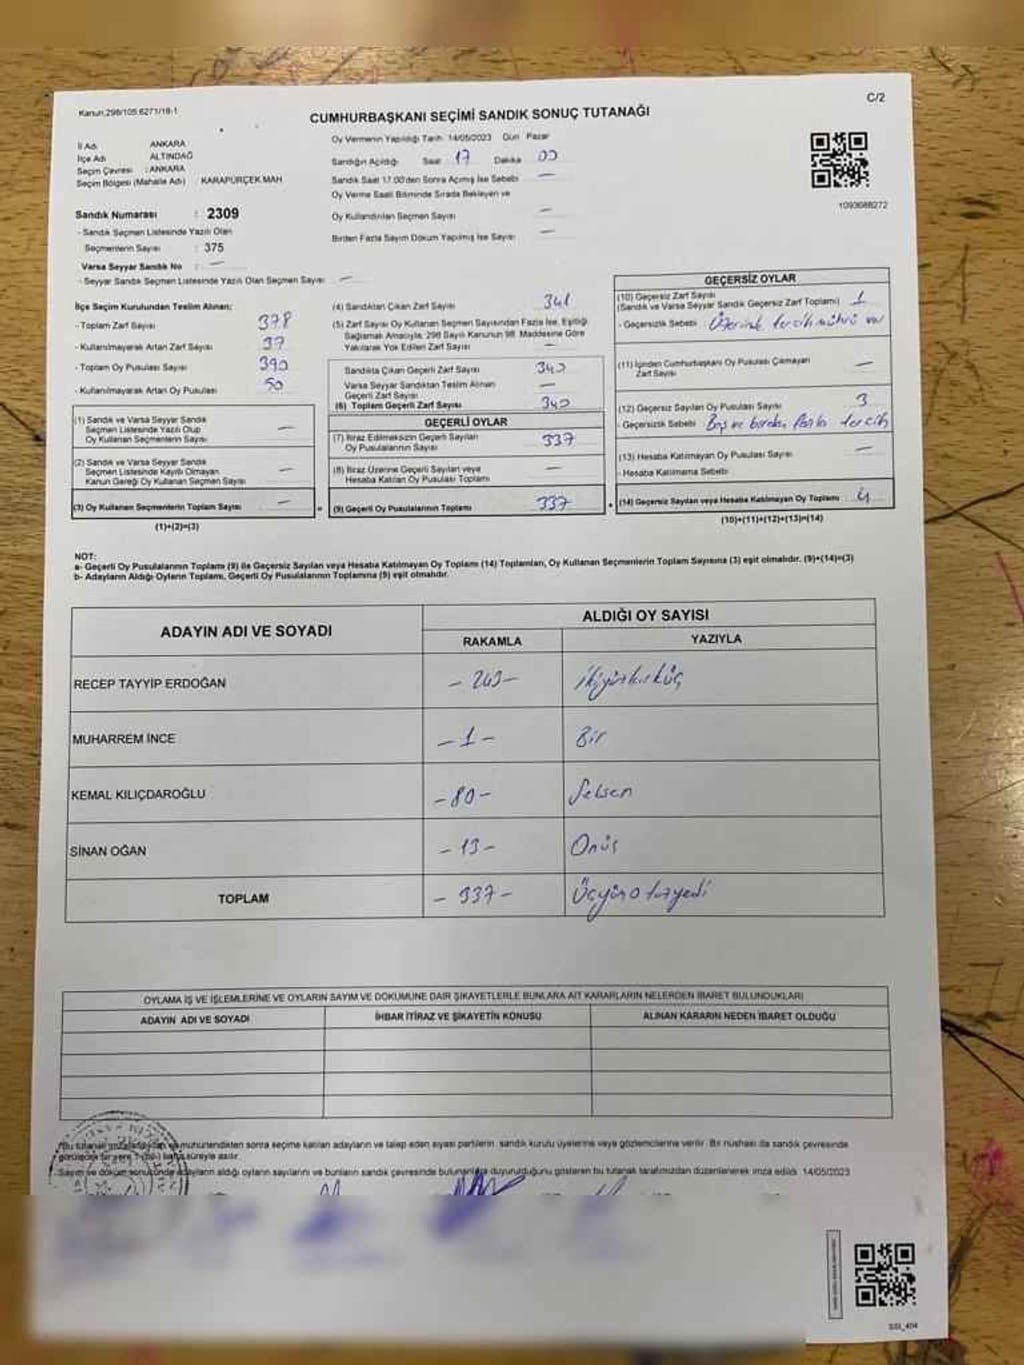 Kanun:298/105.6271/18-1
C/2
CUMHURBAŞKANI SEÇİMİ SANDIK SONUÇ TUTANAĞI
İl Adı ANKARA
İlçe Adı ALTINDAĞ
Seçim Çevresi : ANKARA
Seçim Bölgesi (Mahalle Adı) : KARAPÜRÇEK.MAH
Sandık Numarası : 2309
- Sandık Seçmen Listesinde Yazılı Olan
Seçmenlerin Sayısı : 375
Varsa Seyyar Sandık No : —
- Seyyar Sandık Seçmen Listesinde Yazılı Olan Seçmen Sayısı : —
Oy Vermenin Yapıldığı Tarih: 14/05/2023 Gün: Pazar
Sandığın Açıldığı Saat 17 Dakika 00
Sandık Saat 17.00'den Sonra Açılmış İse Sebebi —
Oy Verme Saati Bitiminde Sırada Bekleyen ve
Oy Kullandırılan Seçmen Sayısı —
Birden Fazla Sayım Döküm Yapılmış İse Sayısı —
1093688272
İlçe Seçim Kurulundan Teslim Alınan;
- Toplam Zarf Sayısı 378
- Kullanılmayarak Artan Zarf Sayısı 37
- Toplam Oy Pusulası Sayısı 390
- Kullanılmayarak Artan Oy Pusulası 50
(1) Sandık ve Varsa Seyyar Sandık
Seçmen Listesinde Yazılı Olup
Oy Kullanan Seçmenlerin Sayısı —
(2) Sandık ve Varsa Seyyar Sandık
Seçmen Listesinde Kayıtlı Olmayan
Kanun Gereği Oy Kullanan Seçmen Sayısı —
(3) Oy Kullanan Seçmenlerin Toplam Sayısı —
(1)+(2)=(3)
(4) Sandıktan Çıkan Zarf Sayısı 341
(5) Zarf Sayısı Oy Kullanan Seçmen Sayısından Fazla İse, Eşitliği
Sağlamak Amacıyla, 298 Sayılı Kanunun 98. Maddesine Göre
Yakılarak Yok Edilen Zarf Sayısı —
Sandıkta Çıkan Geçerli Zarf Sayısı 340
Varsa Seyyar Sandıktan Teslim Alınan
Geçerli Zarf Sayısı —
(6) Toplam Geçerli Zarf Sayısı 340
GEÇERLİ OYLAR
(7) İtiraz Edilmeksizin Geçerli Sayılan
Oy Pusulalarının Sayısı 337
(8) İtiraz Üzerine Geçerli Sayılan veya
Hesaba Katılan Oy Pusulası Toplamı —
(9) Geçerli Oy Pusulalarının Toplamı 337
GEÇERSİZ OYLAR
(10) Geçersiz Zarf Sayısı
(Sandık ve Varsa Seyyar Sandık Geçersiz Zarf Toplamı) 1
- Geçersizlik Sebebi Üzerinde tercih mührü var
(11) İçinden Cumhurbaşkanı Oy Pusulası Çıkmayan
Zarf Sayısı —
(12) Geçersiz Sayılan Oy Pusulası Sayısı 3
- Geçersizlik Sebebi Boş ve birden fazla tercih
(13) Hesaba Katılmayan Oy Pusulası Sayısı —
- Hesaba Katılmama Sebebi
(14) Geçersiz Sayılan veya Hesaba Katılmayan Oy Toplamı 4
(10)+(11)+(12)+(13)=(14)
NOT:
a- Geçerli Oy Pusulalarının Toplamı (9) ile Geçersiz Sayılan veya Hesaba Katılmayan Oy Toplamı (14) Toplamları, Oy Kullanan Seçmenlerin Toplam Sayısına (3) eşit olmalıdır. (9)+(14)=(3)
b- Adayların Aldığı Oyların Toplamı, Geçerli Oy Pusulalarının Toplamına (9) eşit olmalıdır.
ADAYIN ADI VE SOYADI
ALDIĞI OY SAYISI
RAKAMLA
YAZIYLA
RECEP TAYYİP ERDOĞAN - 243 - ikiyüzkırküç
MUHARREM İNCE - 1 - Bir
KEMAL KILIÇDAROĞLU - 80 - Seksen
SİNAN OĞAN - 13 - Onüç
TOPLAM - 337 - Üçyüzotuzyedi
OYLAMA İŞ VE İŞLEMLERİNE VE OYLARIN SAYIM VE DÖKÜMÜNE DAİR ŞİKAYETLERLE BUNLARA AİT KARARLARIN NELERDEN İBARET BULUNDUKLARI
ADAYIN ADI VE SOYADI
İHBAR İTİRAZ VE ŞİKAYETİN KONUSU
ALINAN KARARIN NEDEN İBARET OLDUĞU
mühürlendikten sonra seçime katılan adayların ve talep eden siyasi partilerin, sandık kurulu üyelerine veya gözlemcilerine verilir. Bir nüshası da sandık çevresinde
süreyle asılır.
Sayım ve döküm sonucunda adayların aldığı oyların sayılarını ve bunların sandık çevresinde bulunanlara duyurulduğunu gösteren bu tutanak tarafımızdan düzenlenerek imza edildi. 14/05/2023
SSI_404